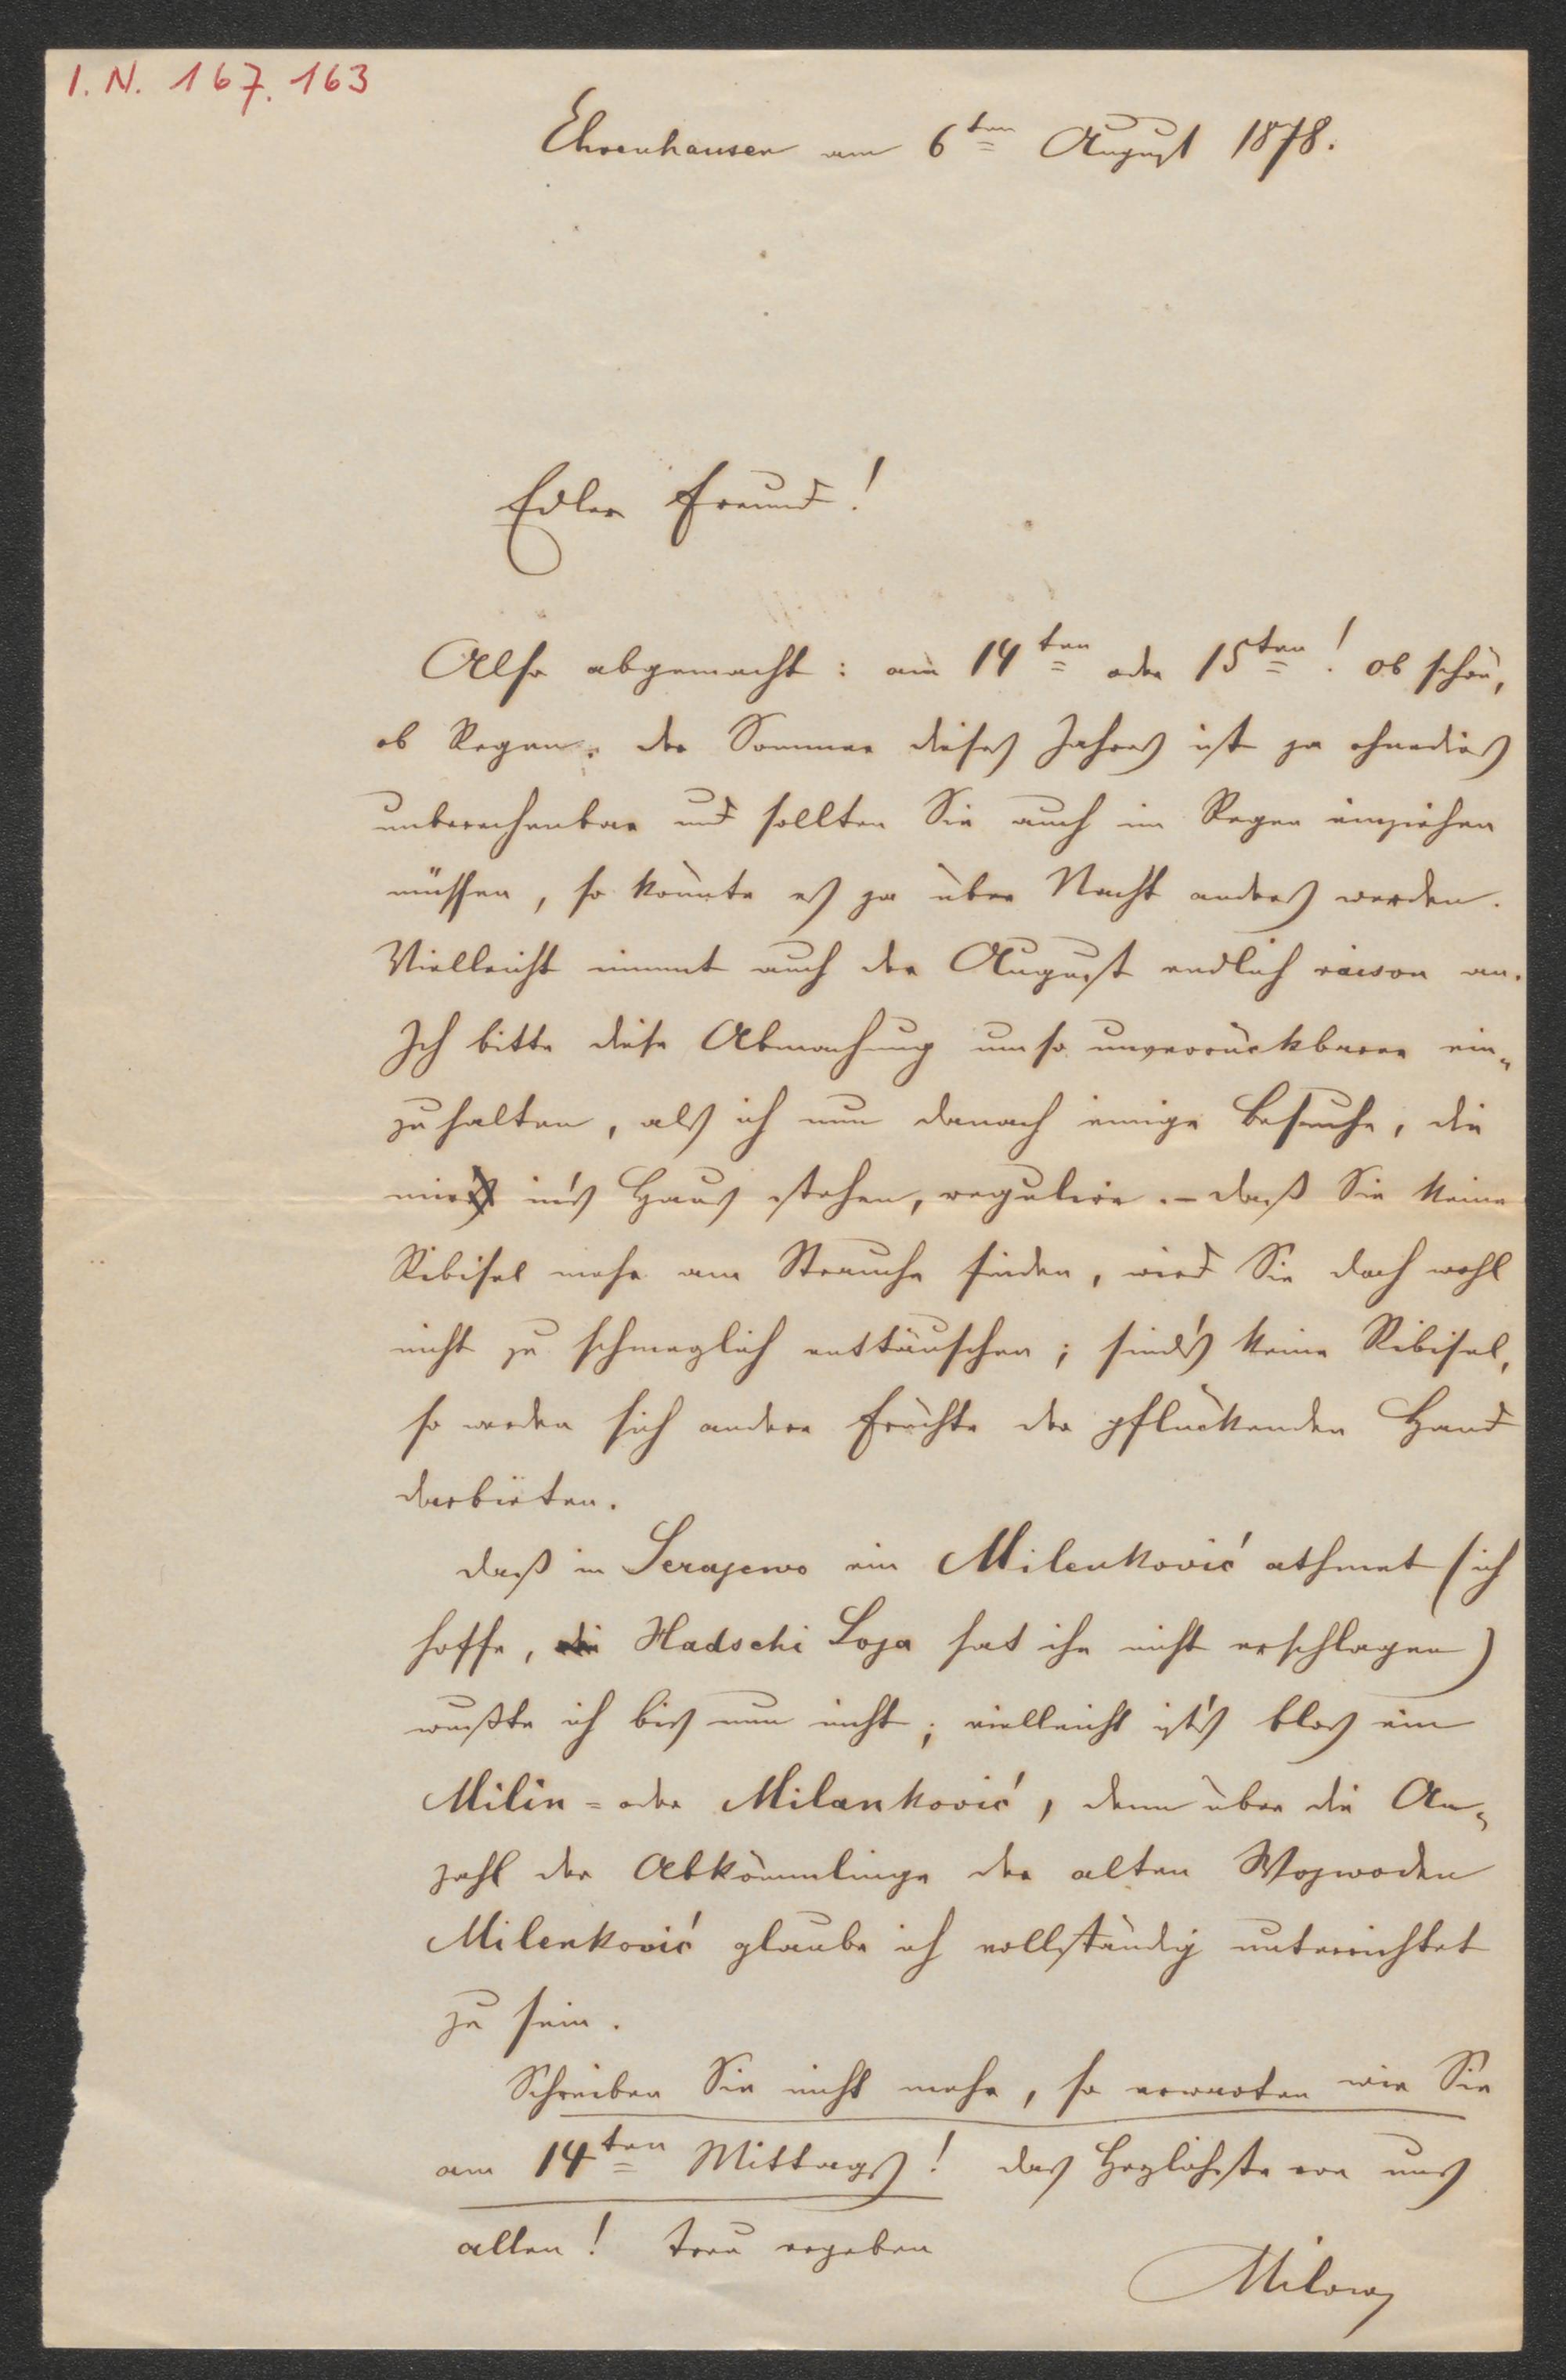 I. N. 167.163
Ehrenhausen am 6ten August 1878.
Edler Freund!
Also abgemacht: am 14ten oder 15ten! ob schön,
ob Regen. der Sommer dieses Jahres ist ja ohnedies
unberechenbar und sollten Sie auch im Regen einziehen
müssen, so könnte es ja über Nacht anders werden.
Vielleicht nimmt auch der August endlich raison an.
Ich bitte diese Abmachung umso unverrückbarer ein-
zuhalten, als ich nun danach einige Besuche, die
mir in's Haus stehen, regulire. – daß Sie keine
Ribisel mehr am Strauche finden, wird Sie doch wohl
nicht zu schmerzlich enttäuschen; sind's keine Ribisel,
so werden sich andere Früchte der pflückenden Hand
darbieten.
daß in Serajewo ein Milenković athmet (ich
hoffe, Hadschi Loja hat ihn nicht erschlagen)
wußte ich bis nun nicht; vielleicht ist's blos ein
Milin= oder Milanković, denn über die An-
zahl der Abkömmlinge des alten Wojwoden
Milenković glaube ich vollständig unterrichtet
zu sein.
Schreiben Sie nicht mehr, so erwarten wir Sie
am 14ten Mittags! das Herzlichste von uns
allen! treu ergeben
Milow